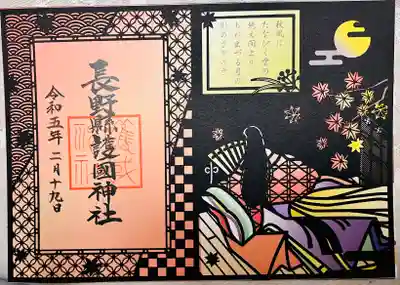 秋風に
たなびく雲の
絶え間より
もれ出づる月の
長野縣護國神社
令和五年二月十九日